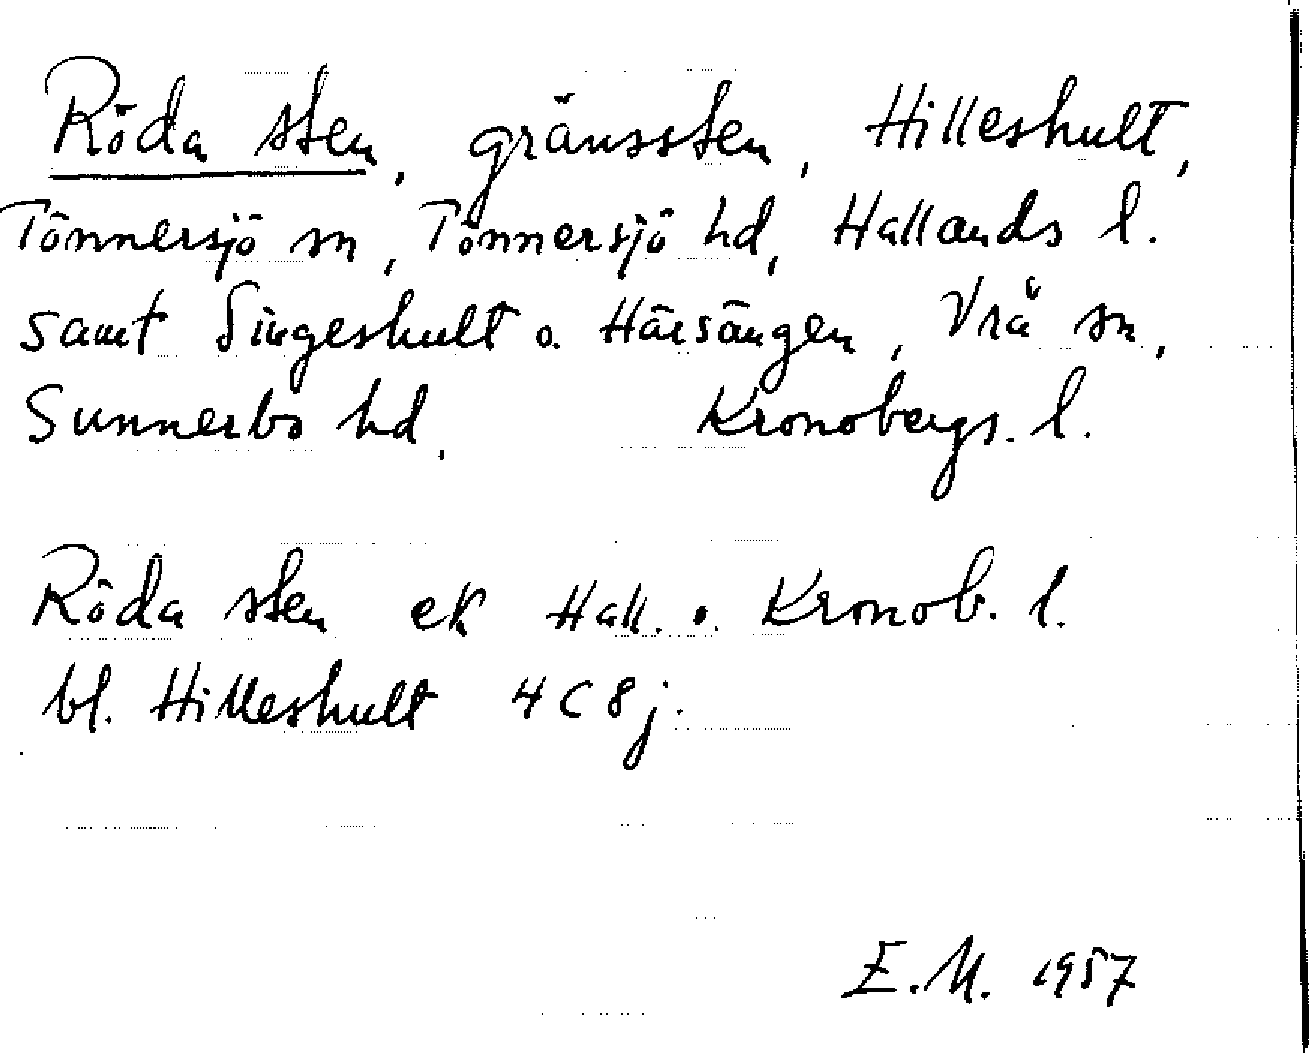 Röda sten, gränssten, Hilleshult,
Tönnersjö sn, Tönnersjö hd, Hallands l.
samt Singeshult o. Härsängen, Vrå sn,
Sunnerbo hd, Kronobergs. l.
Röda sten ek Hall. o. Kronob. l.
bl. Hilleshult 4 C 8 j.
E.M. 1957